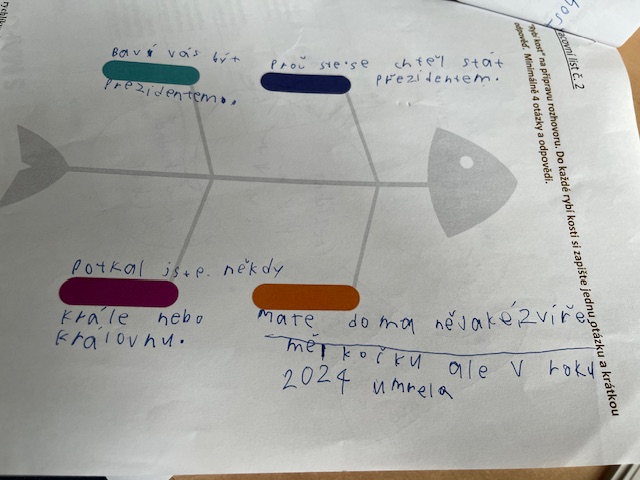 pracovní list č. 2
"Rybí kost" na přípravu rozhovoru. Do každé rybí kosti si zapište jednu otázku a krátkou
odpověď. Minimálně 4 otázky a odpovědi.
Baví vás být
prezidentem.
Proč ste.se chtěl stát
prezidentem.
Potkal jste. někdy
krále nebo
královnu.
Mate doma nějaké zvíře
měl kočku ale v roku
2024 umrela